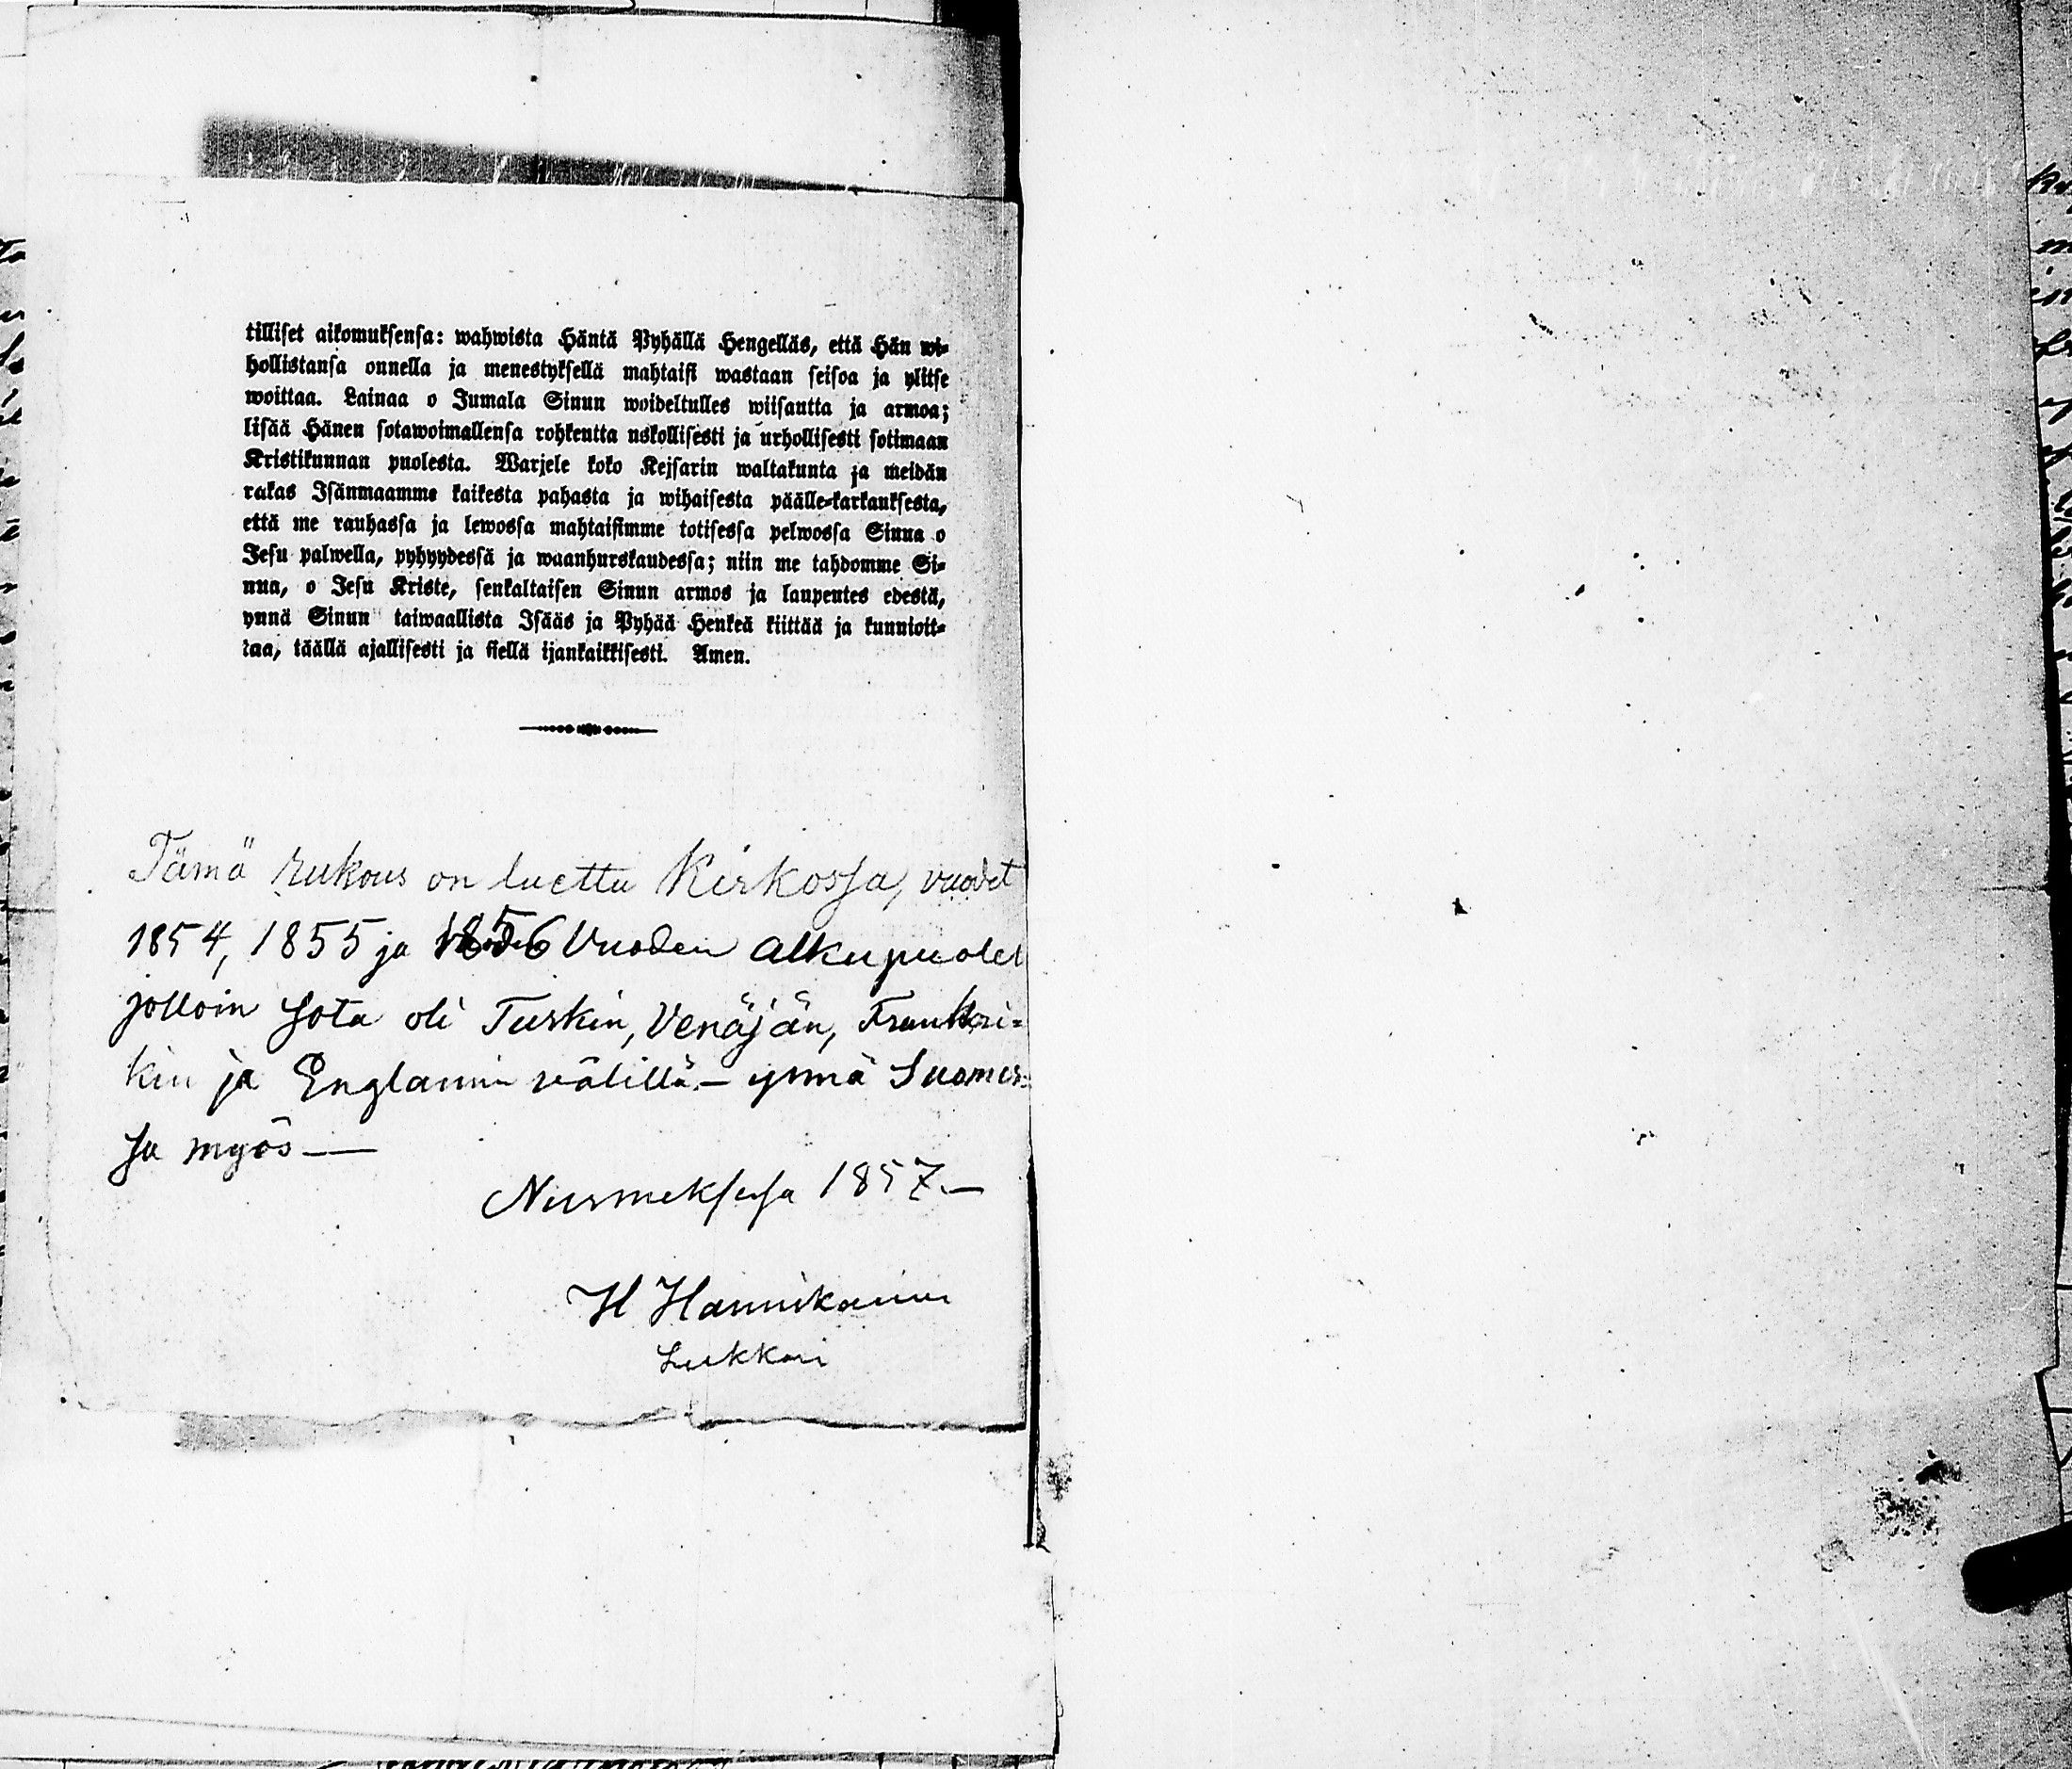 tilliset aikomuksensa: wahwista Häntä Pyhällä Hengelläs, että Hän wi-
hollistansa onnella ja menestyksellä mahtaisi wastaan seisoa ja ylitse
woittaa. Lainaa o Jumala Sinun woideltulles wiisautta ja armoa;
lisää Hänen sotawoimallensa rohkeutta uskollisesti ja urhollisesti sotimaan
Kristikunnan puolesta. Warjele koko Kejsarin waltakunta ja meidän
rakas Isänmaamme kaikesta pahasta ja wihaisesta päälle-karkauksesta,
että me rauhassa ja lewossa mahtaisimme totisessa pelwossa Sinua o
Jesu palwella, pyhyydessä ja waanhurskaudessa; niin me tahdomme Si-
nua, o Jesu Kriste, senkaltaisen Sinun armos ja laupeutes edestä,
ynnä Sinun taiwaallista Isääs ja Pyhää Henkeä kiittää ja kunnioit-
taa, täällä ajallisesti ja siellä ijankaikkisesti. Amen.
Tämä rukous on luettu Kirkossa, vuodet
1854, 1855 ja 1856 Vuoden alkupuolel
jolloin sota oli Turkin, Venäjän, Frankri=
kin ja Englannin välillä – ynnä Suomes=
sa myös —
Nurmeksessa 1857. –
H Hannikainen
Lukkari